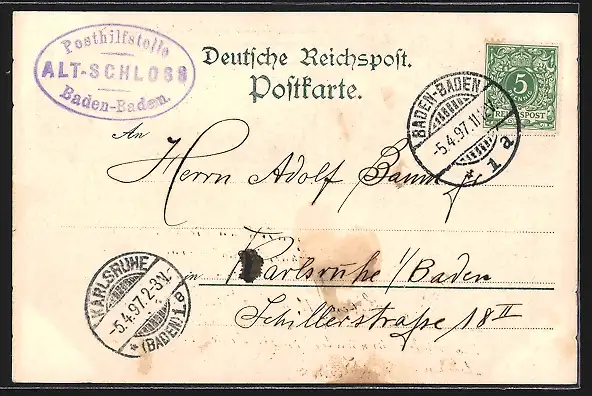 Posthilfstelle
ALT-SCHLOSS
Baden-Baden.
Deutsche Reichspost.
Postkarte.
5
REICHSPOST
BADEN-BADEN
-5.4.97.11-
* 1 a
An
Herrn Adolf
in Karlsruhe i/Baden
Schillerstraße 18 II
KARLSRUHE
-5.4.97.2-3N.
* (BADEN) 1.e